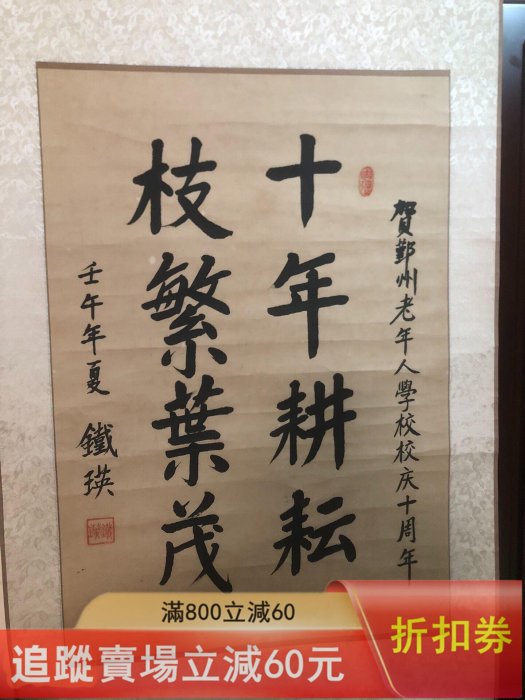 賀鄞州老年人學校校庆十周年
十年耕耘
枝繁葉茂
壬午年夏
鐵瑛
滿800立減60
追蹤賣場立減60元
折扣券